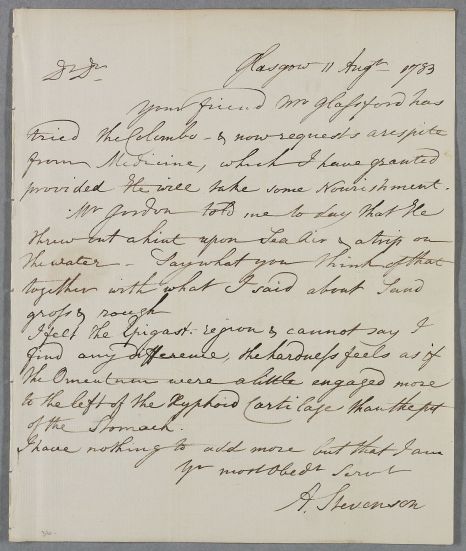 Glasgow 11 Augt 1783
Dr Dr
Your friend Mr Glassford has
tried the Colombo - & now requests a respite
from Medicine, which I have granted
provided He will take some Nourishment.
Mr Gordon told me to day that He
threw out a hint upon Sea Air & a trip on
the water - Say what you think of that
together with what I said about
gross & rough
I felt the Epigast. region & cannot say I
find any difference, the hardness feels as if
the Omentum were a little engaged more
to the left of the Xyphoid Cartilage than the pit
of the Stomach.
I have nothing to add more but that I am
Yr most Obedt Servt
A. Stevenson